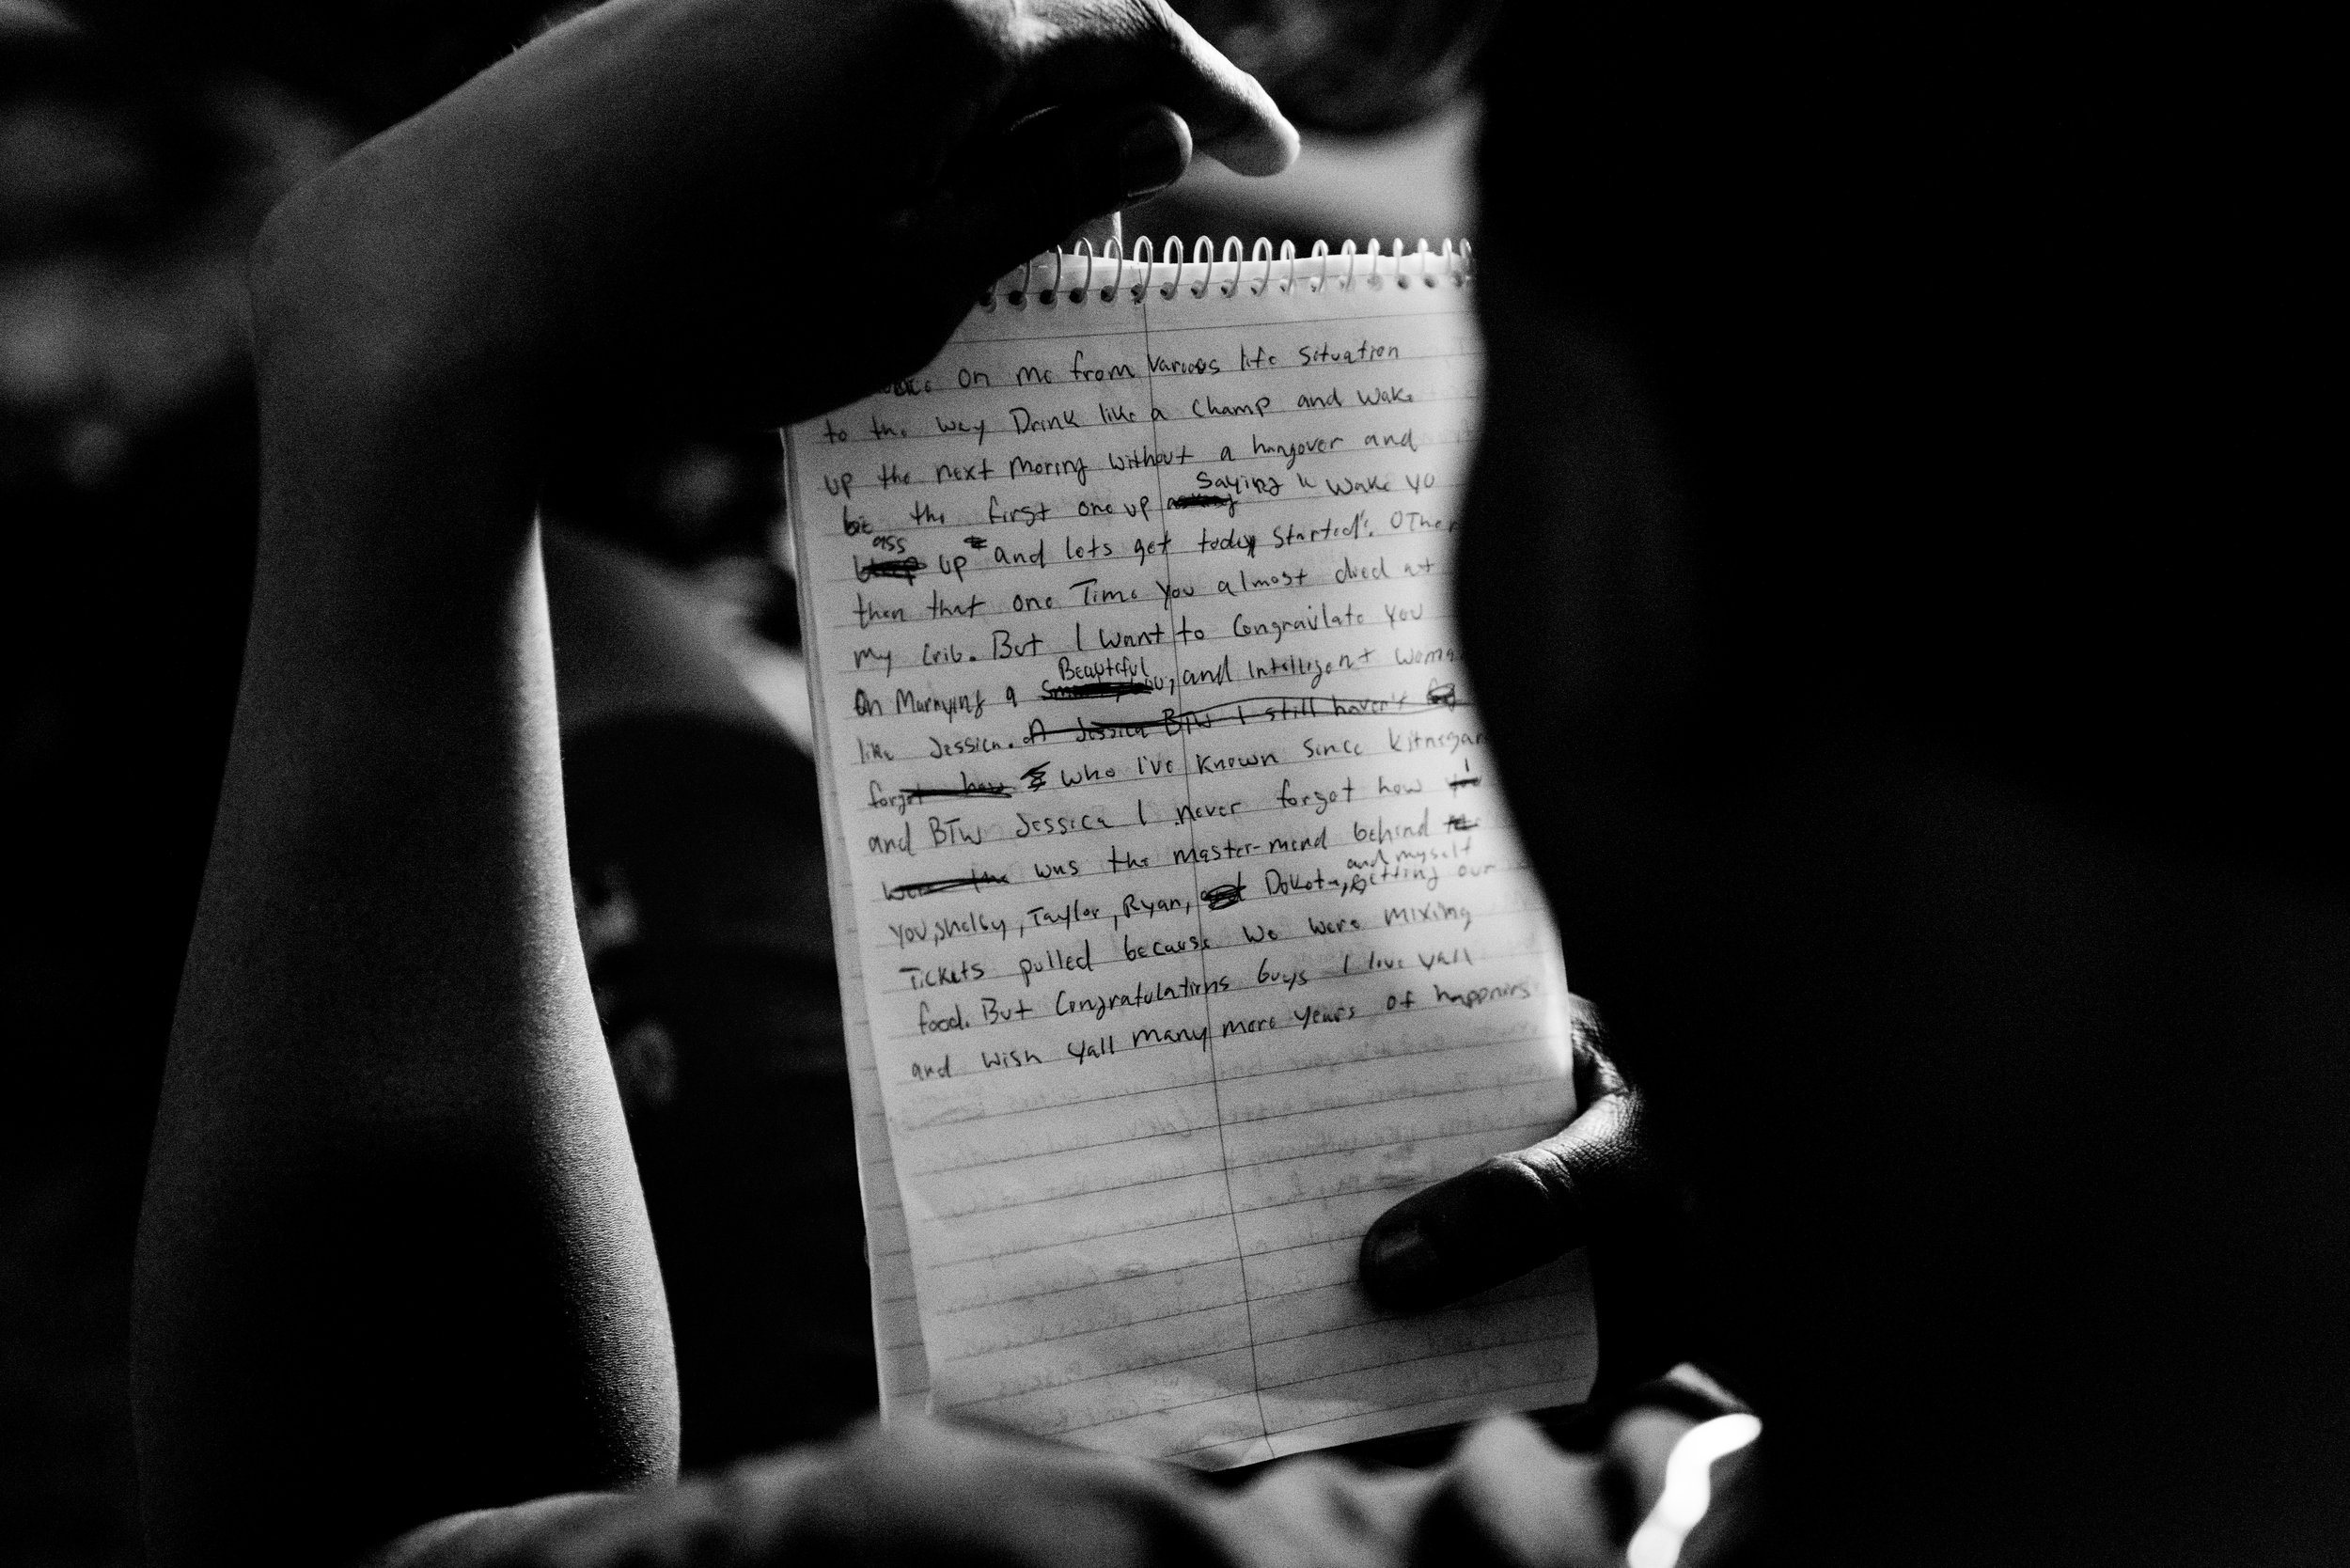 on me from various life situation
to the way Drink like a Champ and wake
up the next moring without a hangover and
be the first one up saying "wake yo
ass up and lets get today started". Other
then that one Time you almost died at
my crib. But I want to Congravlate you
On Marrying a Beautiful, and Intelligent woma
like Jessica. A Jessica BTW I still haven't
forgot how who I've known since kitnegar
and BTW Jessica I never forgot how I
were the was the master-mind behind
you, shelby, Taylor, Ryan, Dakota, and myself getting our
Tickets pulled because we were mixing
food. But Congratulations Guys I love yall
and wish yall many more years of happnies